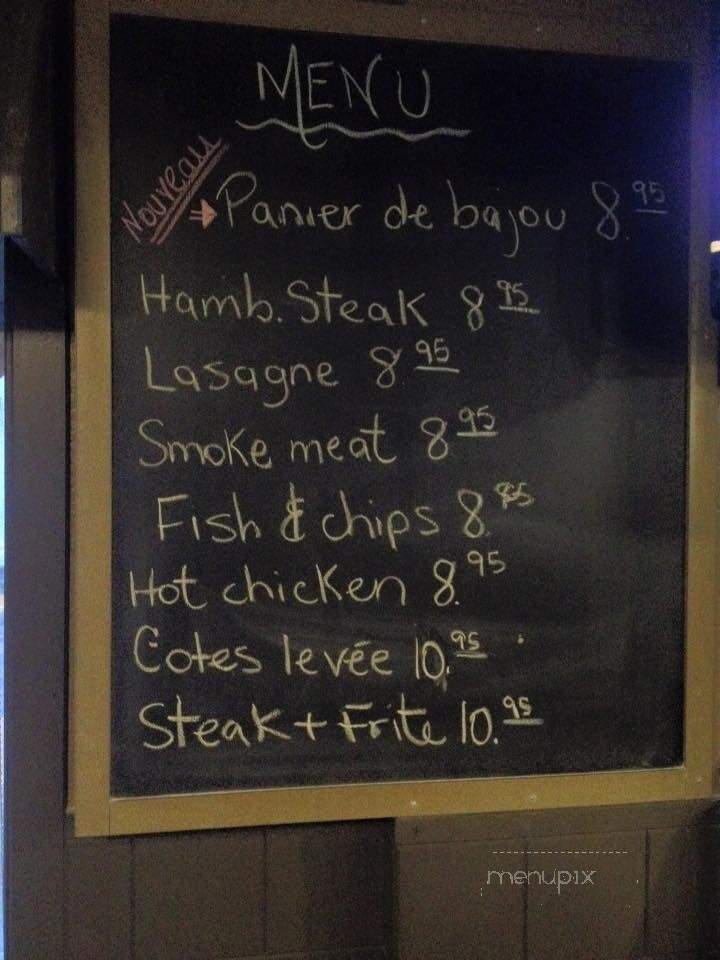 MENU
Nouveau
→ Panier de bajou 8.95
Hamb. Steak 8.95
Lasagne 8.95
Smoke meat 8.95
Fish & chips 8.95
Hot chicken 8.95
Cotes levée 10.95
Steak + Frite 10.95
menupix